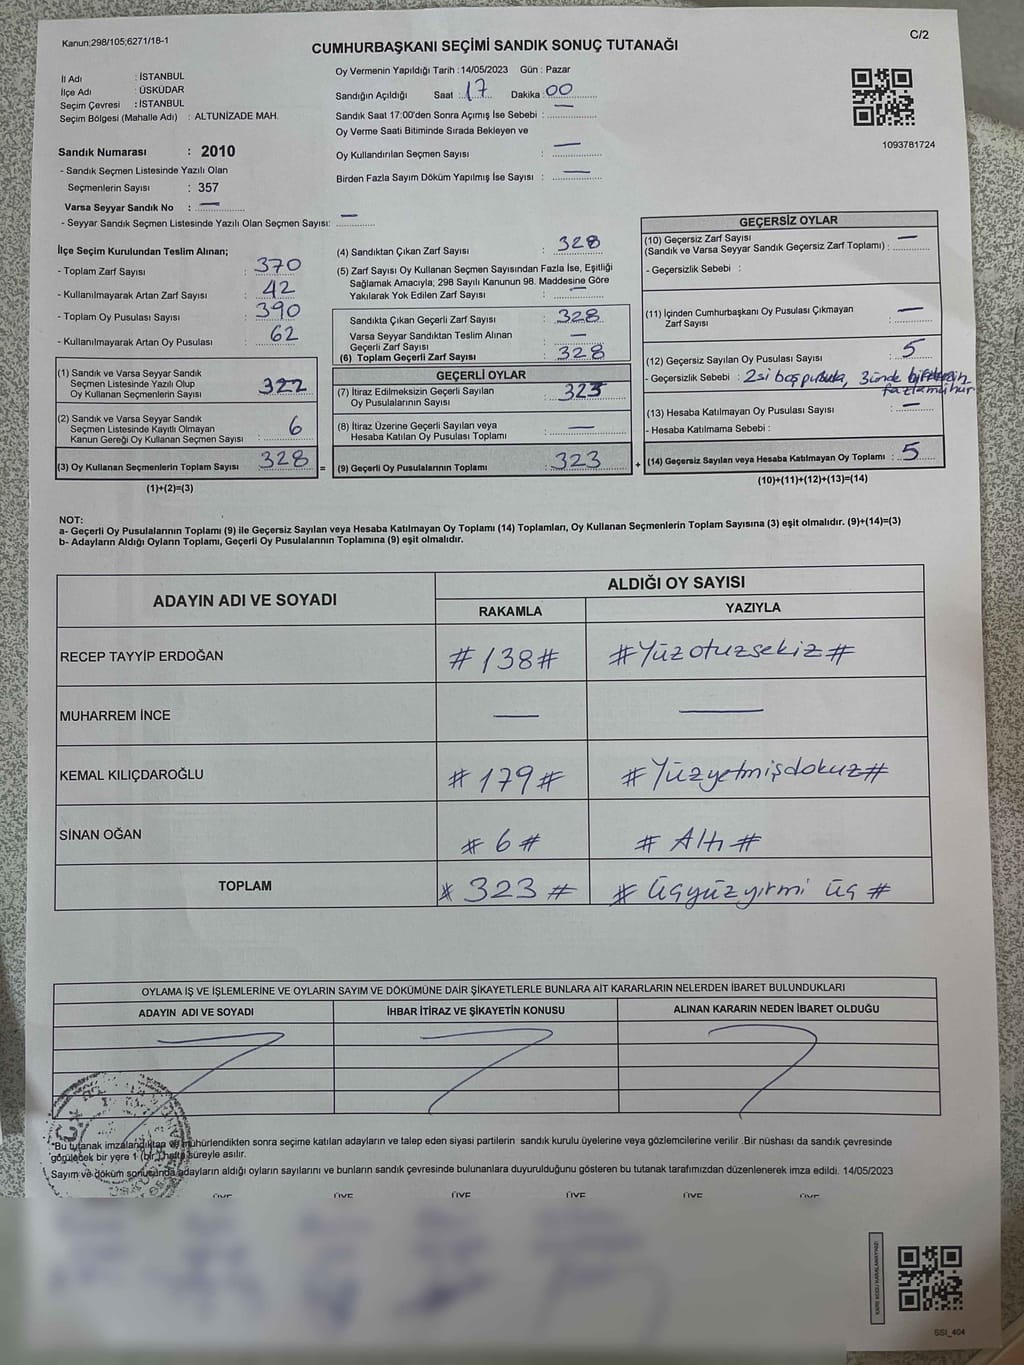 Kanun;298/105;6271/18-1
C/2
CUMHURBAŞKANI SEÇİMİ SANDIK SONUÇ TUTANAĞI
İl Adı : İSTANBUL
İlçe Adı : ÜSKÜDAR
Seçim Çevresi : İSTANBUL
Seçim Bölgesi (Mahalle Adı) : ALTUNİZADE MAH.
Sandık Numarası : 2010
- Sandık Seçmen Listesinde Yazılı Olan
Seçmenlerin Sayısı : 357
Varsa Seyyar Sandık No : —
- Seyyar Sandık Seçmen Listesinde Yazılı Olan Seçmen Sayısı: —
Oy Vermenin Yapıldığı Tarih : 14/05/2023 Gün : Pazar
Sandığın Açıldığı Saat : 17 Dakika : 00
Sandık Saat 17:00'den Sonra Açımış İse Sebebi : —
Oy Verme Saati Bitiminde Sırada Bekleyen ve
Oy Kullandırılan Seçmen Sayısı : —
Birden Fazla Sayım Döküm Yapılmış İse Sayısı : —
1093781724
İlçe Seçim Kurulundan Teslim Alınan;
- Toplam Zarf Sayısı : 370
- Kullanılmayarak Artan Zarf Sayısı : 42
- Toplam Oy Pusulası Sayısı : 390
- Kullanılmayarak Artan Oy Pusulası : 62
(1) Sandık ve Varsa Seyyar Sandık
Seçmen Listesinde Yazılı Olup
Oy Kullanan Seçmenlerin Sayısı : 322
(2) Sandık ve Varsa Seyyar Sandık
Seçmen Listesinde Kayıtlı Olmayan
Kanun Gereği Oy Kullanan Seçmen Sayısı : 6
(3) Oy Kullanan Seçmenlerin Toplam Sayısı : 328 =
(1)+(2)=(3)
(4) Sandıktan Çıkan Zarf Sayısı : 328
(5) Zarf Sayısı Oy Kullanan Seçmen Sayısından Fazla İse, Eşitliği
Sağlamak Amacıyla; 298 Sayılı Kanunun 98. Maddesine Göre
Yakılarak Yok Edilen Zarf Sayısı : —
Sandıkta Çıkan Geçerli Zarf Sayısı : 328
Varsa Seyyar Sandıktan Teslim Alınan
Geçerli Zarf Sayısı : —
(6) Toplam Geçerli Zarf Sayısı : 328
GEÇERLİ OYLAR
(7) İtiraz Edilmeksizin Geçerli Sayılan
Oy Pusulalarının Sayısı : 323
(8) İtiraz Üzerine Geçerli Sayılan veya
Hesaba Katılan Oy Pusulası Toplamı : —
(9) Geçerli Oy Pusulalarının Toplamı : 323 +
GEÇERSİZ OYLAR
(10) Geçersiz Zarf Sayısı
(Sandık ve Varsa Seyyar Sandık Geçersiz Zarf Toplamı) : —
- Geçersizlik Sebebi :
(11) İçinden Cumhurbaşkanı Oy Pusulası Çıkmayan
Zarf Sayısı : —
(12) Geçersiz Sayılan Oy Pusulası Sayısı : 5
- Geçersizlik Sebebi : 2si boş pusula, 3ünde birden
fazla mühür
(13) Hesaba Katılmayan Oy Pusulası Sayısı : —
- Hesaba Katılmama Sebebi :
(14) Geçersiz Sayılan veya Hesaba Katılmayan Oy Toplamı : 5
(10)+(11)+(12)+(13)=(14)
NOT:
a- Geçerli Oy Pusulalarının Toplamı (9) ile Geçersiz Sayılan veya Hesaba Katılmayan Oy Toplamı (14) Toplamları, Oy Kullanan Seçmenlerin Toplam Sayısına (3) eşit olmalıdır. (9)+(14)=(3)
b- Adayların Aldığı Oyların Toplamı, Geçerli Oy Pusulalarının Toplamına (9) eşit olmalıdır.
ADAYIN ADI VE SOYADI ALDIĞI OY SAYISI
RAKAMLA YAZIYLA
RECEP TAYYİP ERDOĞAN #138# #Yüzotuzsekiz#
MUHARREM İNCE — —
KEMAL KILIÇDAROĞLU #179# #Yüzyetmişdokuz#
SİNAN OĞAN #6# #Altı#
TOPLAM #323# #Üçyüzyirmi üç#
OYLAMA İŞ VE İŞLEMLERİNE VE OYLARIN SAYIM VE DÖKÜMÜNE DAİR ŞİKAYETLERLE BUNLARA AİT KARARLARIN NELERDEN İBARET BULUNDUKLARI
ADAYIN ADI VE SOYADI İHBAR İTİRAZ VE ŞİKAYETİN KONUSU ALINAN KARARIN NEDEN İBARET OLDUĞU
"Bu tutanak imzalandıktan ve mühürlendikten sonra seçime katılan adayların ve talep eden siyasi partilerin sandık kurulu üyelerine veya gözlemcilerine verilir .Bir nüshası da sandık çevresinde
görülecek bir yere 1 (bir) hafta süreyle asılır.
Sayım ve döküm sonucunda adayların aldığı oyların sayılarını ve bunların sandık çevresinde bulunanlara duyurulduğunu gösteren bu tutanak tarafımızdan düzenlenerek imza edildi. 14/05/2023
ÜYE ÜYE ÜYE ÜYE ÜYE ÜYE
KARE KODU KARALAMAYINIZ!
SSI_404